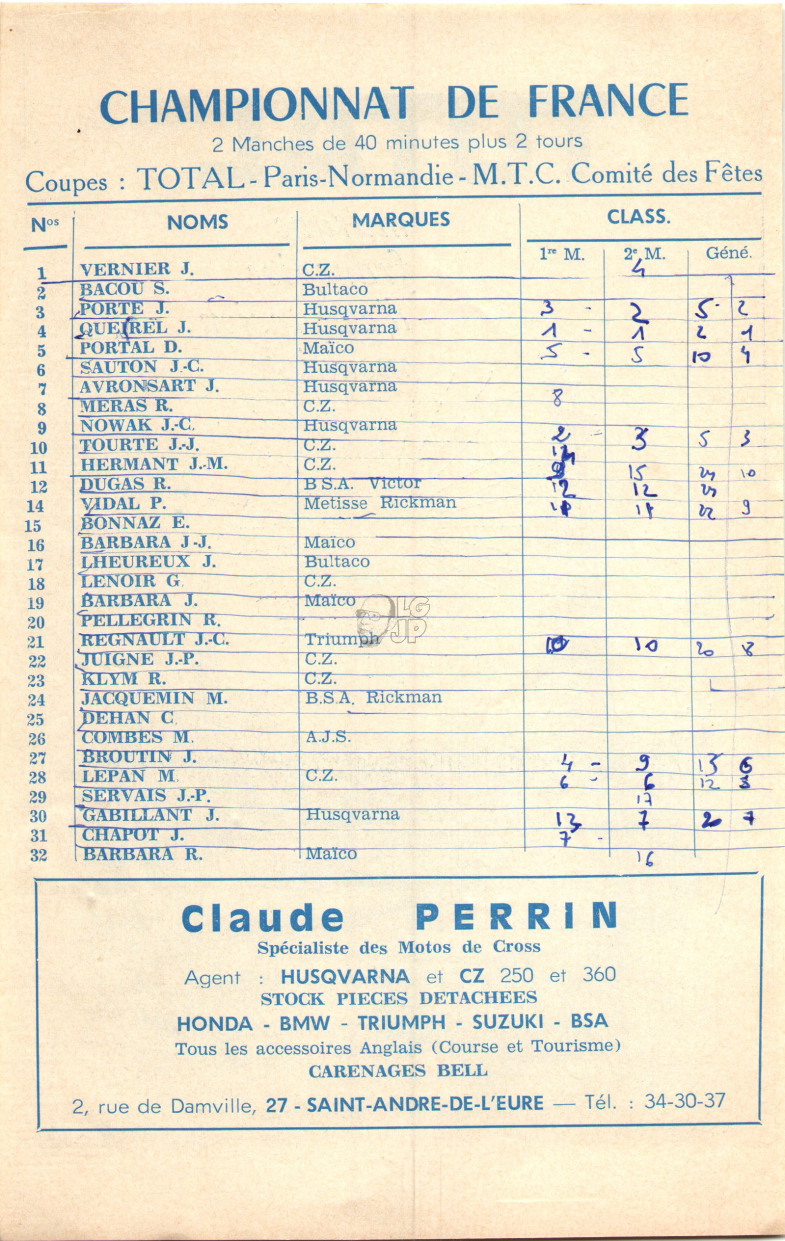 CHAMPIONNAT DE FRANCE
2 Manches de 40 minutes plus 2 tours
Coupes : TOTAL - Paris-Normandie - M.T.C. Comité des Fêtes
Nos NOMS MARQUES CLASS.
1re M. 2e M. Géné.
1 VERNIER J. C.Z. 4
2 BACOU S. Bultaco
3 PORTE J. Husqvarna 3 - 2 5 2
4 QUEIREL J. Husqvarna 1 - 1 2 1
5 PORTAL D. Maïco 5 - 5 10 4
6 SAUTON J.-C. Husqvarna
7 AVRONSART J. Husqvarna
8 MERAS R. C.Z. 8
9 NOWAK J.-C. Husqvarna 2 - 3 5 3
10 TOURTE J.-J. C.Z.
11 HERMANT J.-M. C.Z. 15 24 10
12 DUGAS R. B S.A. Victor 12 12 24
14 VIDAL P. Metisse Rickman 22 9
15 BONNAZ E.
16 BARBARA J-J. Maïco
17 LHEUREUX J. Bultaco
18 LENOIR G. C.Z.
19 BARBARA J. Maïco
20 PELLEGRIN R.
21 REGNAULT J.-C. Triumph 10 10 20 8
22 JUIGNE J.-P. C.Z.
23 KLYM R. C.Z.
24 JACQUEMIN M. B.S.A. Rickman
25 DEHAN C
26 COMBES M. A.J.S.
27 BROUTIN J. 4 - 9 13 6
28 LEPAN M. C.Z. 6 - 6 12
29 SERVAIS J.-P. 17
30 GABILLANT J. Husqvarna 13 7 20 7
31 CHAPOT J. 7 -
32 BARBARA R. Maïco 16
LG
JP
Claude PERRIN
Spécialiste des Motos de Cross
Agent : HUSQVARNA et CZ 250 et 360
STOCK PIECES DETACHEES
HONDA - BMW - TRIUMPH - SUZUKI - BSA
Tous les accessoires Anglais (Course et Tourisme)
CARENAGES BELL
2, rue de Damville, 27 - SAINT-ANDRE-DE-L'EURE — Tél. : 34-30-37